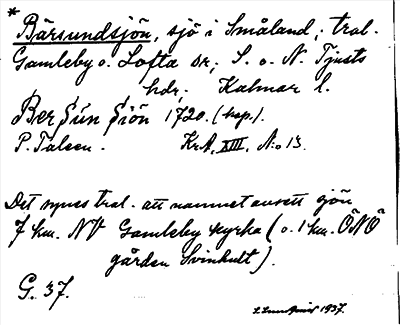 * Bärsundsjön, sjö i Småland, tral.
Gamleby o. Lofta sr; S. o. N. Tjusts
hdr, Kalmar l.
Ber Sun Siön 1720. (kop.).
P. Taleen. KrA, XIII, No 13.
Det synes tral. att namnet avsett sjön
7 km. NV Gamleby kyrka (o. 1 km. ÖNÖ
gården Svinhult).
G. 37.
1937.